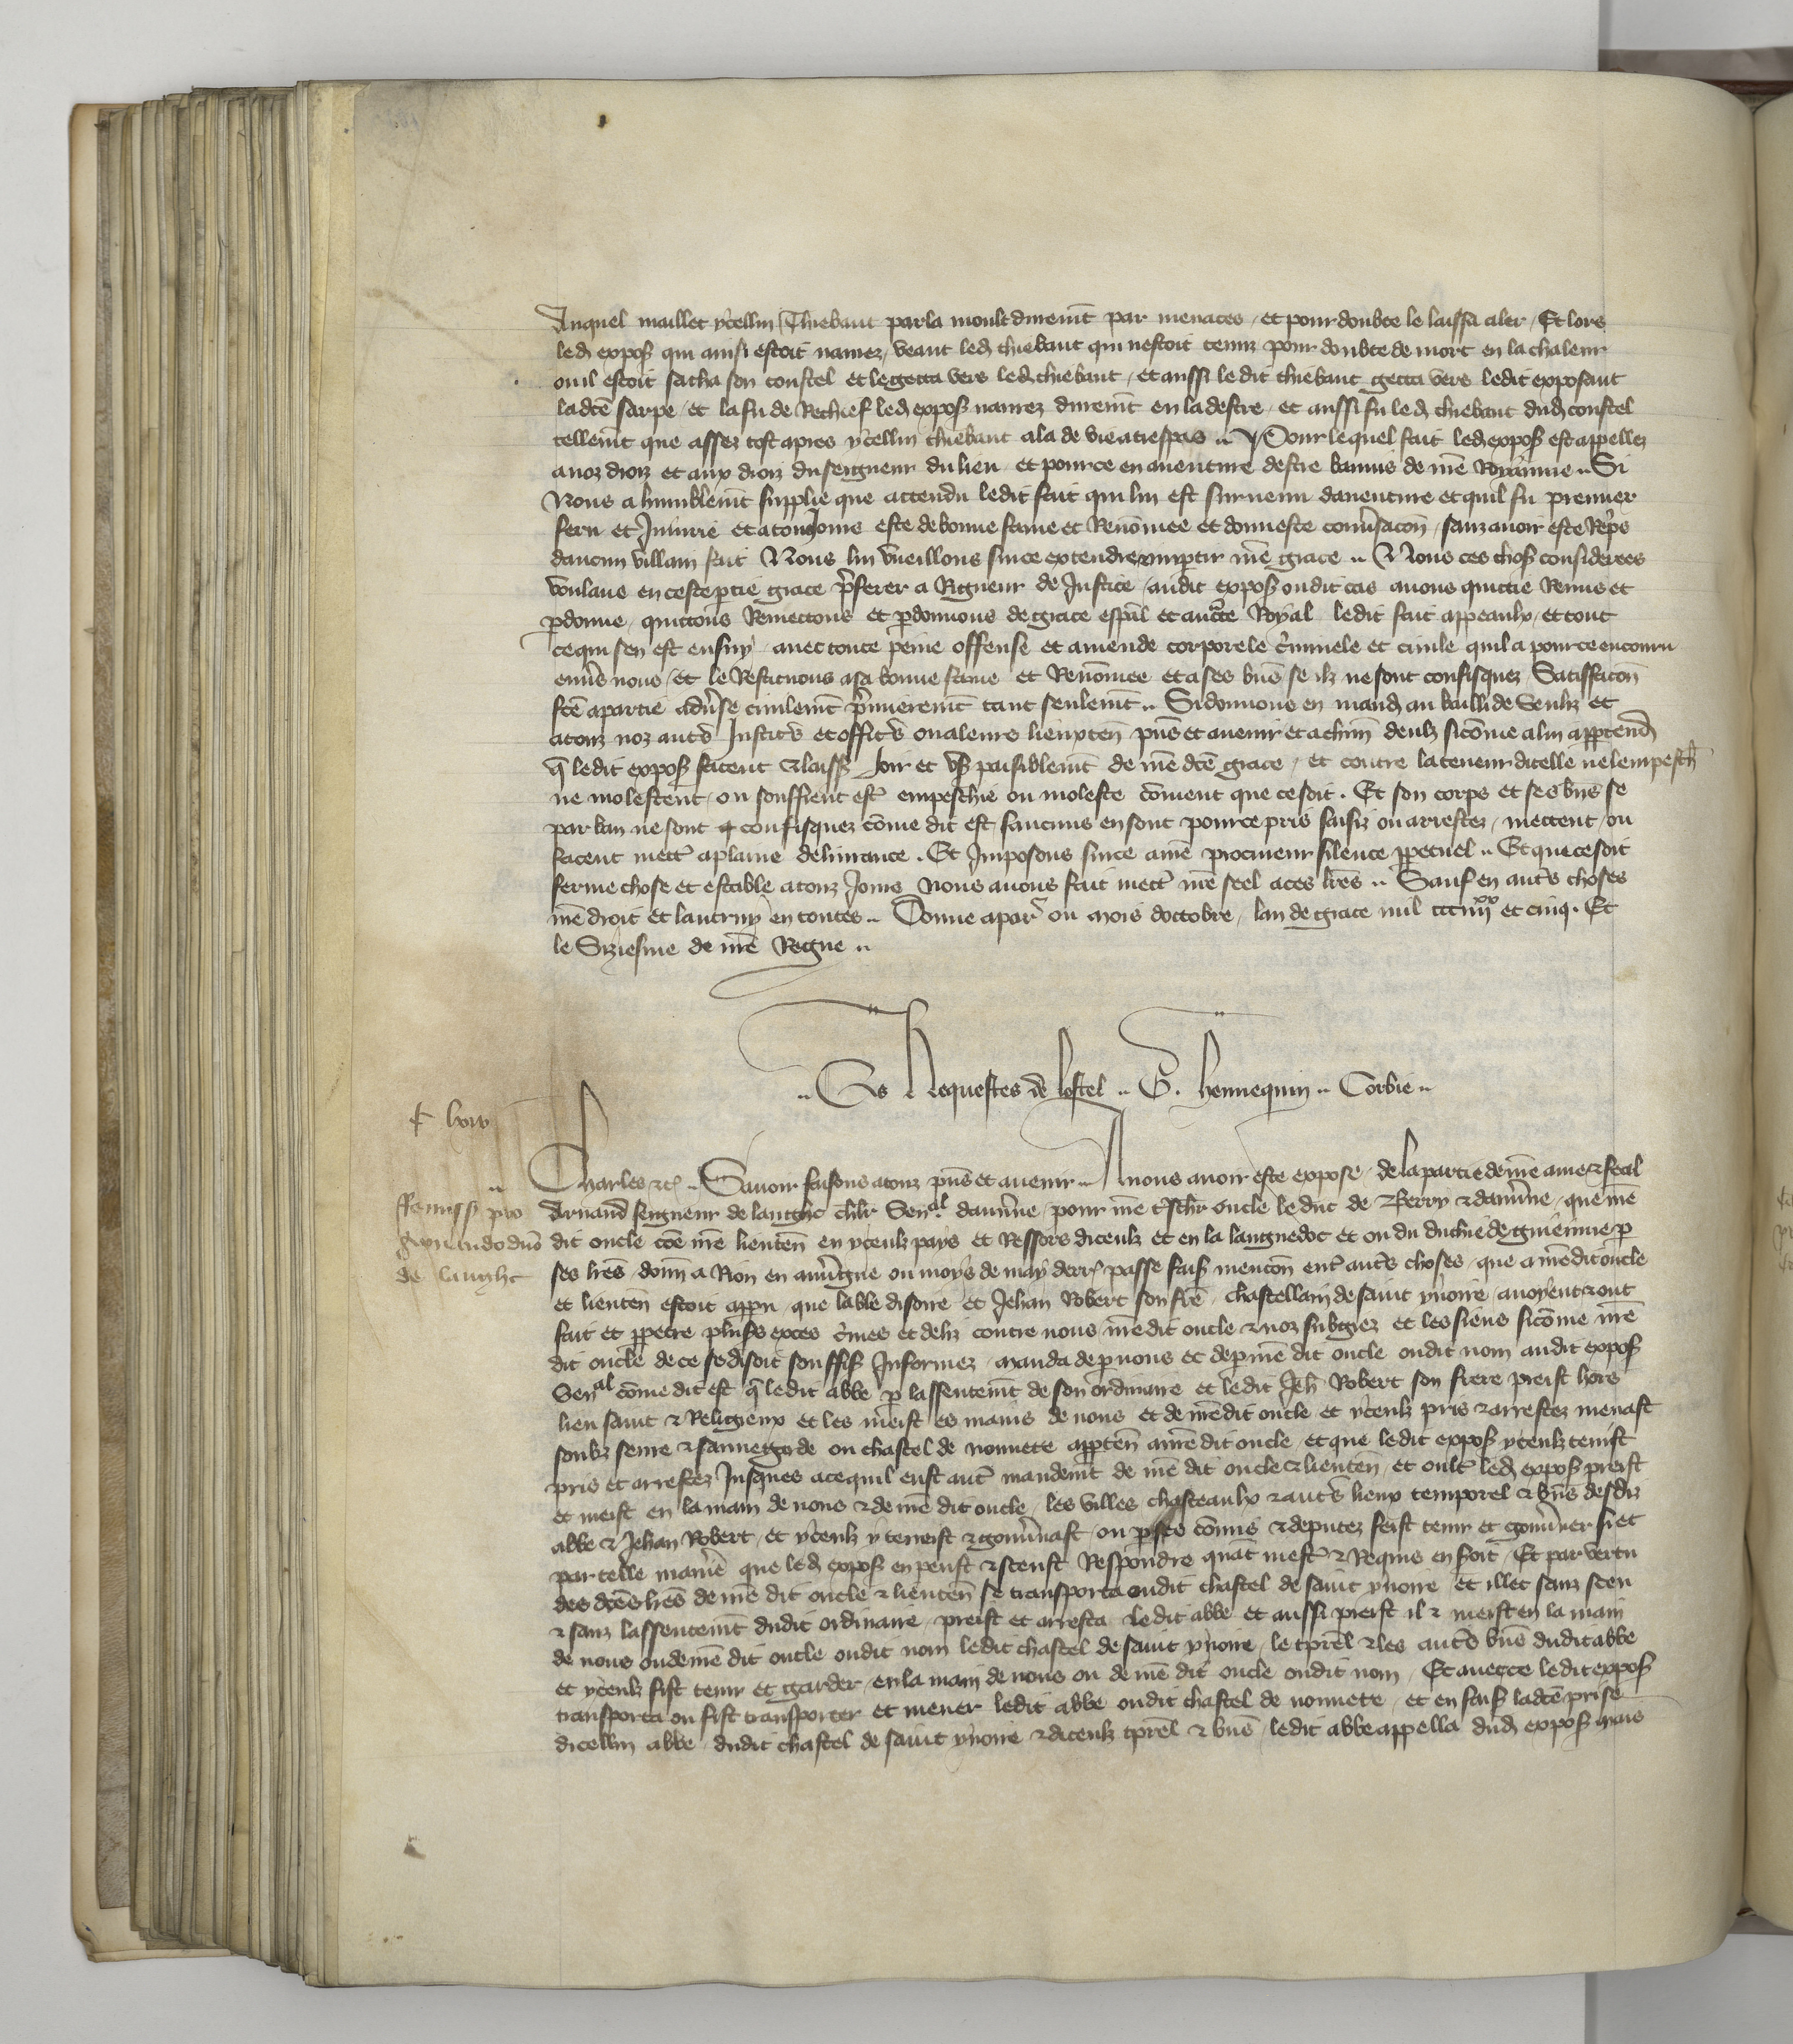 Auquel maillet ycellui Thiebaut parla moult durem̃t par menaces / et pour doubte le laissa aler / Et lors
led expoſ qui ainsi estoit navrez / veant led thiebaut qui nestoit tenuz pour doubte de mort en la chaleur
ou il estoit sacha son coustel et le getta vers led thiebaut / et aussi ledit thiebaut getta vers ledit exposant
lad̃ce sarpe / et la fu de Rechief led expoſ navrez durem̃t en la destre / et aussi fu led thiebaut dud coustel
tellem̃t que assez tost apres ycellui thiebaut ala de vie a trespas .. Pour lequel fait led expoſ est appellez
a noz droiz et aux droiz du seigneur du lieu / et pour ce en aventure destre bannis de nr̃e Royaume .. Si
Nous a humblem̃t supplie que attendu ledit fait qui lui est survenu daventure et quil fu premier
feru et Injurie et a touzjours este de bonne fame et Renõmee et donneste convsacõn / sanz avoir este Rep̃s
daucun villain fait Nous lui vueillons sur ce extendre nr̃e grace .. Nous ces choſ considerees
voulans en ceste p̱tie grace p̃ferer a Rigueur de Justice / audit expoſ oudit cas avons quictie Remis et
p̱donne / quictons Remectons et p̱donnons de grace esp̃al et aucte Royal ledit fait appeaulx / et tout
ce qui sen est ensuy / avec toute peine offense et amende corporele c̃minele et civile quil a pour ce encouru
env̾s nous / et le Restituons a sa bonne fame et Renõmee et a ses biẽs se ilz ne sont confisquez Satiffacõn
fc̃e a partie adv̾se civilem̃t p̃mierem̃t tant seulem̃t .. Si donnons en mand au bailli de Senliz et
a touz noz autr̃s Justic̾s et offic̾s ou a leurs lieuxteñ p̃ns et avenir et a chũn deulz sicõme a lui app̱tend
q̃ ledit expoſ facent & laisſ Joir et uſ paisiblem̃t de nr̃e dc̃e grace / et contre la teneur dicelle ne lempesch̃
ne molestent / ou souffrent est̃ empeschie ou moleste cõment que ce soit . Et son corps et ses biẽs se
par ban ne sont confisquez cõme dit est / saucuns en sont pour ce pris saisiz ou arrestez / mettent / ou
facent mett̃ a plaine delivrance . Et Imposons sur ce a nr̃e procureur silence p̱petuel .. Et que ce soit
ferme chose et estable a touz Jours Nous avons fait mett̃ nr̃e seel a ces lr̃es .. Sauf en autr̃s choses
nr̃e droit et lautruy en toutes .. Donne a par̃ ou mois doctobre / lan de grace mil ccciiii xx et cinq . Et
le Siziesme de nr̃e Regne ..
.. Es Requestes de lostel .. G . hennequin .. Corbie ..
Charles &c̃ .. Savoir faisons a touz p̃ns et avenir .. A nous avoir este expose / de la partie de nr̃e ame & feal
Remisſ pro
Arnaud seigneur de langhac ch̃lr Senal dauṽgne / pour nr̃e tr̃sch̃r oncle le duc de Berry & dauṽgne / que nr̃e
Arnando dño
dit oncle cõe nr̃e lieuteñ en yceulz pays et Ressors diceulz et en la languedoc et ou du duchie de guienne p̱
de langhc
ses lr̃es / doñ a Rion en auṽgne ou moys de may derr̃ passe faisſ mencõn ent̃ autr̃s choses / que a nr̃e dit oncle
et lieuteñ estoit app̱u / que labbe disoire et Jehan Robert son fr̃e / chastellain de saint ynoire / avoyent & ont
fait et p̱petre plusſs exces c̃mes et deliz contre nous nr̃e dit oncle & noz subgiez et les siens sicõme nr̃e
dit oncle de ce se disoit souffisſ Informez / manda de p̱ nous et de p̱ nr̃e dit oncle oudit nom audit expoſ
Senal cõme dit est q̃ ledit abbe p̱ lassentem̃t de son ordinaire et ledit Jeh̃ Robert son frere preist hors
lieu saint & Religieux et les meist es mains de nous et de nr̃e dit oncle et yceulz pris & arrestez menast
soubz seure & sauvegarde ou chastel de nonnete app̱teñ a nr̃e dit oncle / et que ledit expoſ yceulz tenist
pris et arrestez Jusques a ce quil eust aut̃ mandem̃t de nr̃e dit oncle & lieuteñ / et oult̃ led expoſ preist
et meist en la main de nous & de nr̃e dit oncle / les villes chasteaulx & autr̃s lieux temporel & biẽs desdiz
abbe & Jehan Robert / et yceulz y tenist & gouṽnast / ou p̱ ses cõmis & deputez feist tenir et gouṽner si et
par telle manie̾ que led expoſ en peust & sceust Respondre quãt mest̃ & Requis en soit / Et par vertu
des dc̃es lr̃es de nr̃e dit oncle & lieuteñ se transporta oudit chastel de saint ynoire et illec sanz sceu
& sanz lassentem̃t dudit ordinaire / preist et arresta ledit abbe et aussi preist il & meist en la main
de nous ou de nr̃e dit oncle oudit nom ledit chastel de saint ynoire / le tp̃rel & les autr̃s biẽs dudit abbe
et yceulz fist tenir et garder / en la main de nous ou de nr̃e dit oncle oudit nom / Et avecce ledit expoſ
transporta ou fist transporter et mener ledit abbe oudit chastel de nonnete / et en faisſ lad̃ce prise
dicellui abbe / dudit chastel de saint ynoire & diceulz tp̃rel & biẽs / ledit abbe appella dud expoſ mais